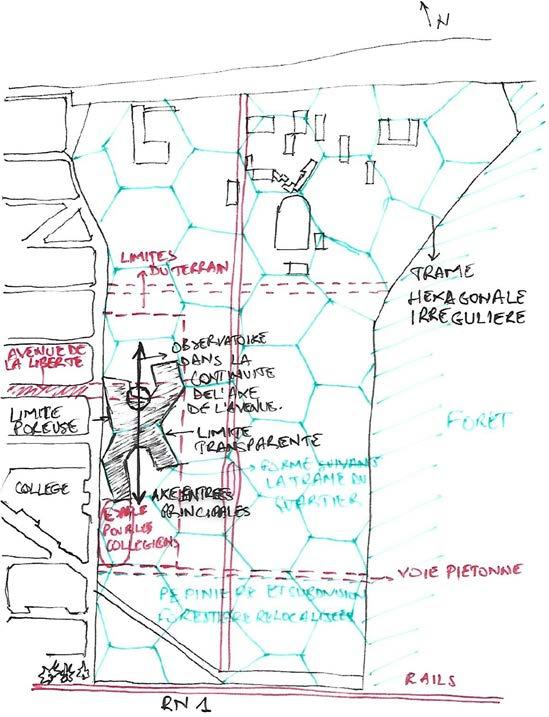 N
LIMITES
DU TERRAIN
TRAME
HEXAGONALE
IRREGULIERE
OBSERVATOIRE
DANS LA
CONTINUITE
DE L'AXE
DE L'AVENUE.
AVENUE DE
LA LIBERTE
LIMITE
POREUSE
LIMITE
TRANSPARENTE
FORET
FORME SUIVANT
LA TRAME DU
QUARTIER
COLLEGE
AXE ENTREES
PRINCIPALES
POUR LES
COLLEGIENS
VOIE PIETONNE
PEPINIERE ET SUBDIVISION
FORESTIERE RELOCALISEES
RAILS
RN 1